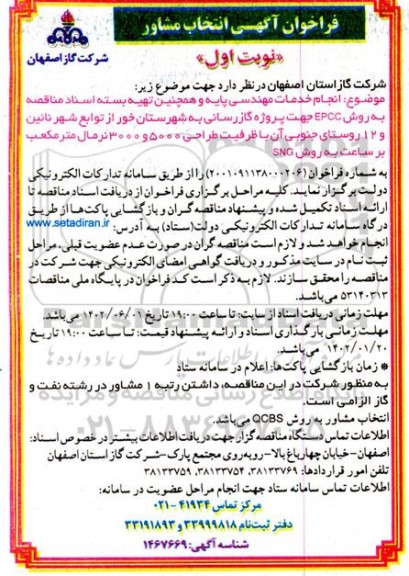 فراخوان آگهی انتخاب مشاور
شرکت گاز اصفهان
«نوبت اول»
شرکت گاز استان اصفهان در نظر دارد جهت موضوع زیر:
موضوع: انجام خدمات مهندسی پایه و همچنین تهیه بسته اسناد مناقصه
به روش EPCC جهت پروژه گازرسانی به شهرستان خور از توابع شهر نائین
و ۱۲ روستای جنوبی آن با ظرفیت طراحی ۵۰۰۰ و ۳۰۰۰ نرمال مترمکعب
بر ساعت به روش SNG
به شماره فراخوان (۲۰۰۱۰۹۱۱۳۸۰۰۰۲۰۶) را از طریق سامانه تدارکات الکترونیکی
دولت برگزار نمایند. کلیه مراحل برگزاری فراخوان از دریافت اسناد مناقصه تا
ارائه اسناد تکمیل شده و پیشنهاد مناقصه گران و بازگشایی پاکت‌ها از طریق
درگاه سامانه تدارکات الکترونیکی دولت (ستاد) به آدرس: www.setadiran.ir
انجام خواهد شد و لازم است مناقصه گران در صورت عدم عضویت قبلی، مراحل
ثبت نام در سایت مذکور و دریافت گواهی امضای الکترونیکی جهت شرکت در
مناقصه را محقق سازند. لازم به ذکر است کد فراخوان در پایگاه ملی مناقصات
۵۳۱۴۰۳۱۳ می‌باشد.
مهلت زمانی دریافت اسناد از سایت: تا ساعت ۱۹:۰۰ تاریخ ۱۴۰۲/۰۶/۰۱ می‌باشد.
مهلت زمانی بارگذاری اسناد و ارائه پیشنهاد قیمت: تا ساعت ۱۹:۰۰ تاریخ
۱۴۰۲/۰۱/۲۰ می‌باشد.
* زمان بازگشایی پاکت‌ها: اعلام در سامانه ستاد
به منظور شرکت در این مناقصه، داشتن رتبه ۱ مشاور در رشته نفت و
گاز الزامی است.
انتخاب مشاور به روش QCBS می‌باشد.
اطلاعات تماس دستگاه مناقصه گزار جهت دریافت اطلاعات بیشتر در خصوص اسناد:
اصفهان-خیابان چهارباغ بالا-روبه‌روی مجتمع پارک-شرکت گاز استان اصفهان
تلفن امور قراردادها: ۳۸۱۳۳۷۶۹، ۳۸۱۳۳۷۵۴، ۳۸۱۳۳۷۵۹
اطلاعات تماس سامانه ستاد جهت انجام مراحل عضویت در سامانه:
مرکز تماس ۴۱۹۳۴-۰۲۱
دفتر ثبت‌نام ۳۳۹۹۹۸۱۸ و ۳۳۱۹۱۸۹۳
شناسه آگهی: ۱۴۶۷۶۶۹